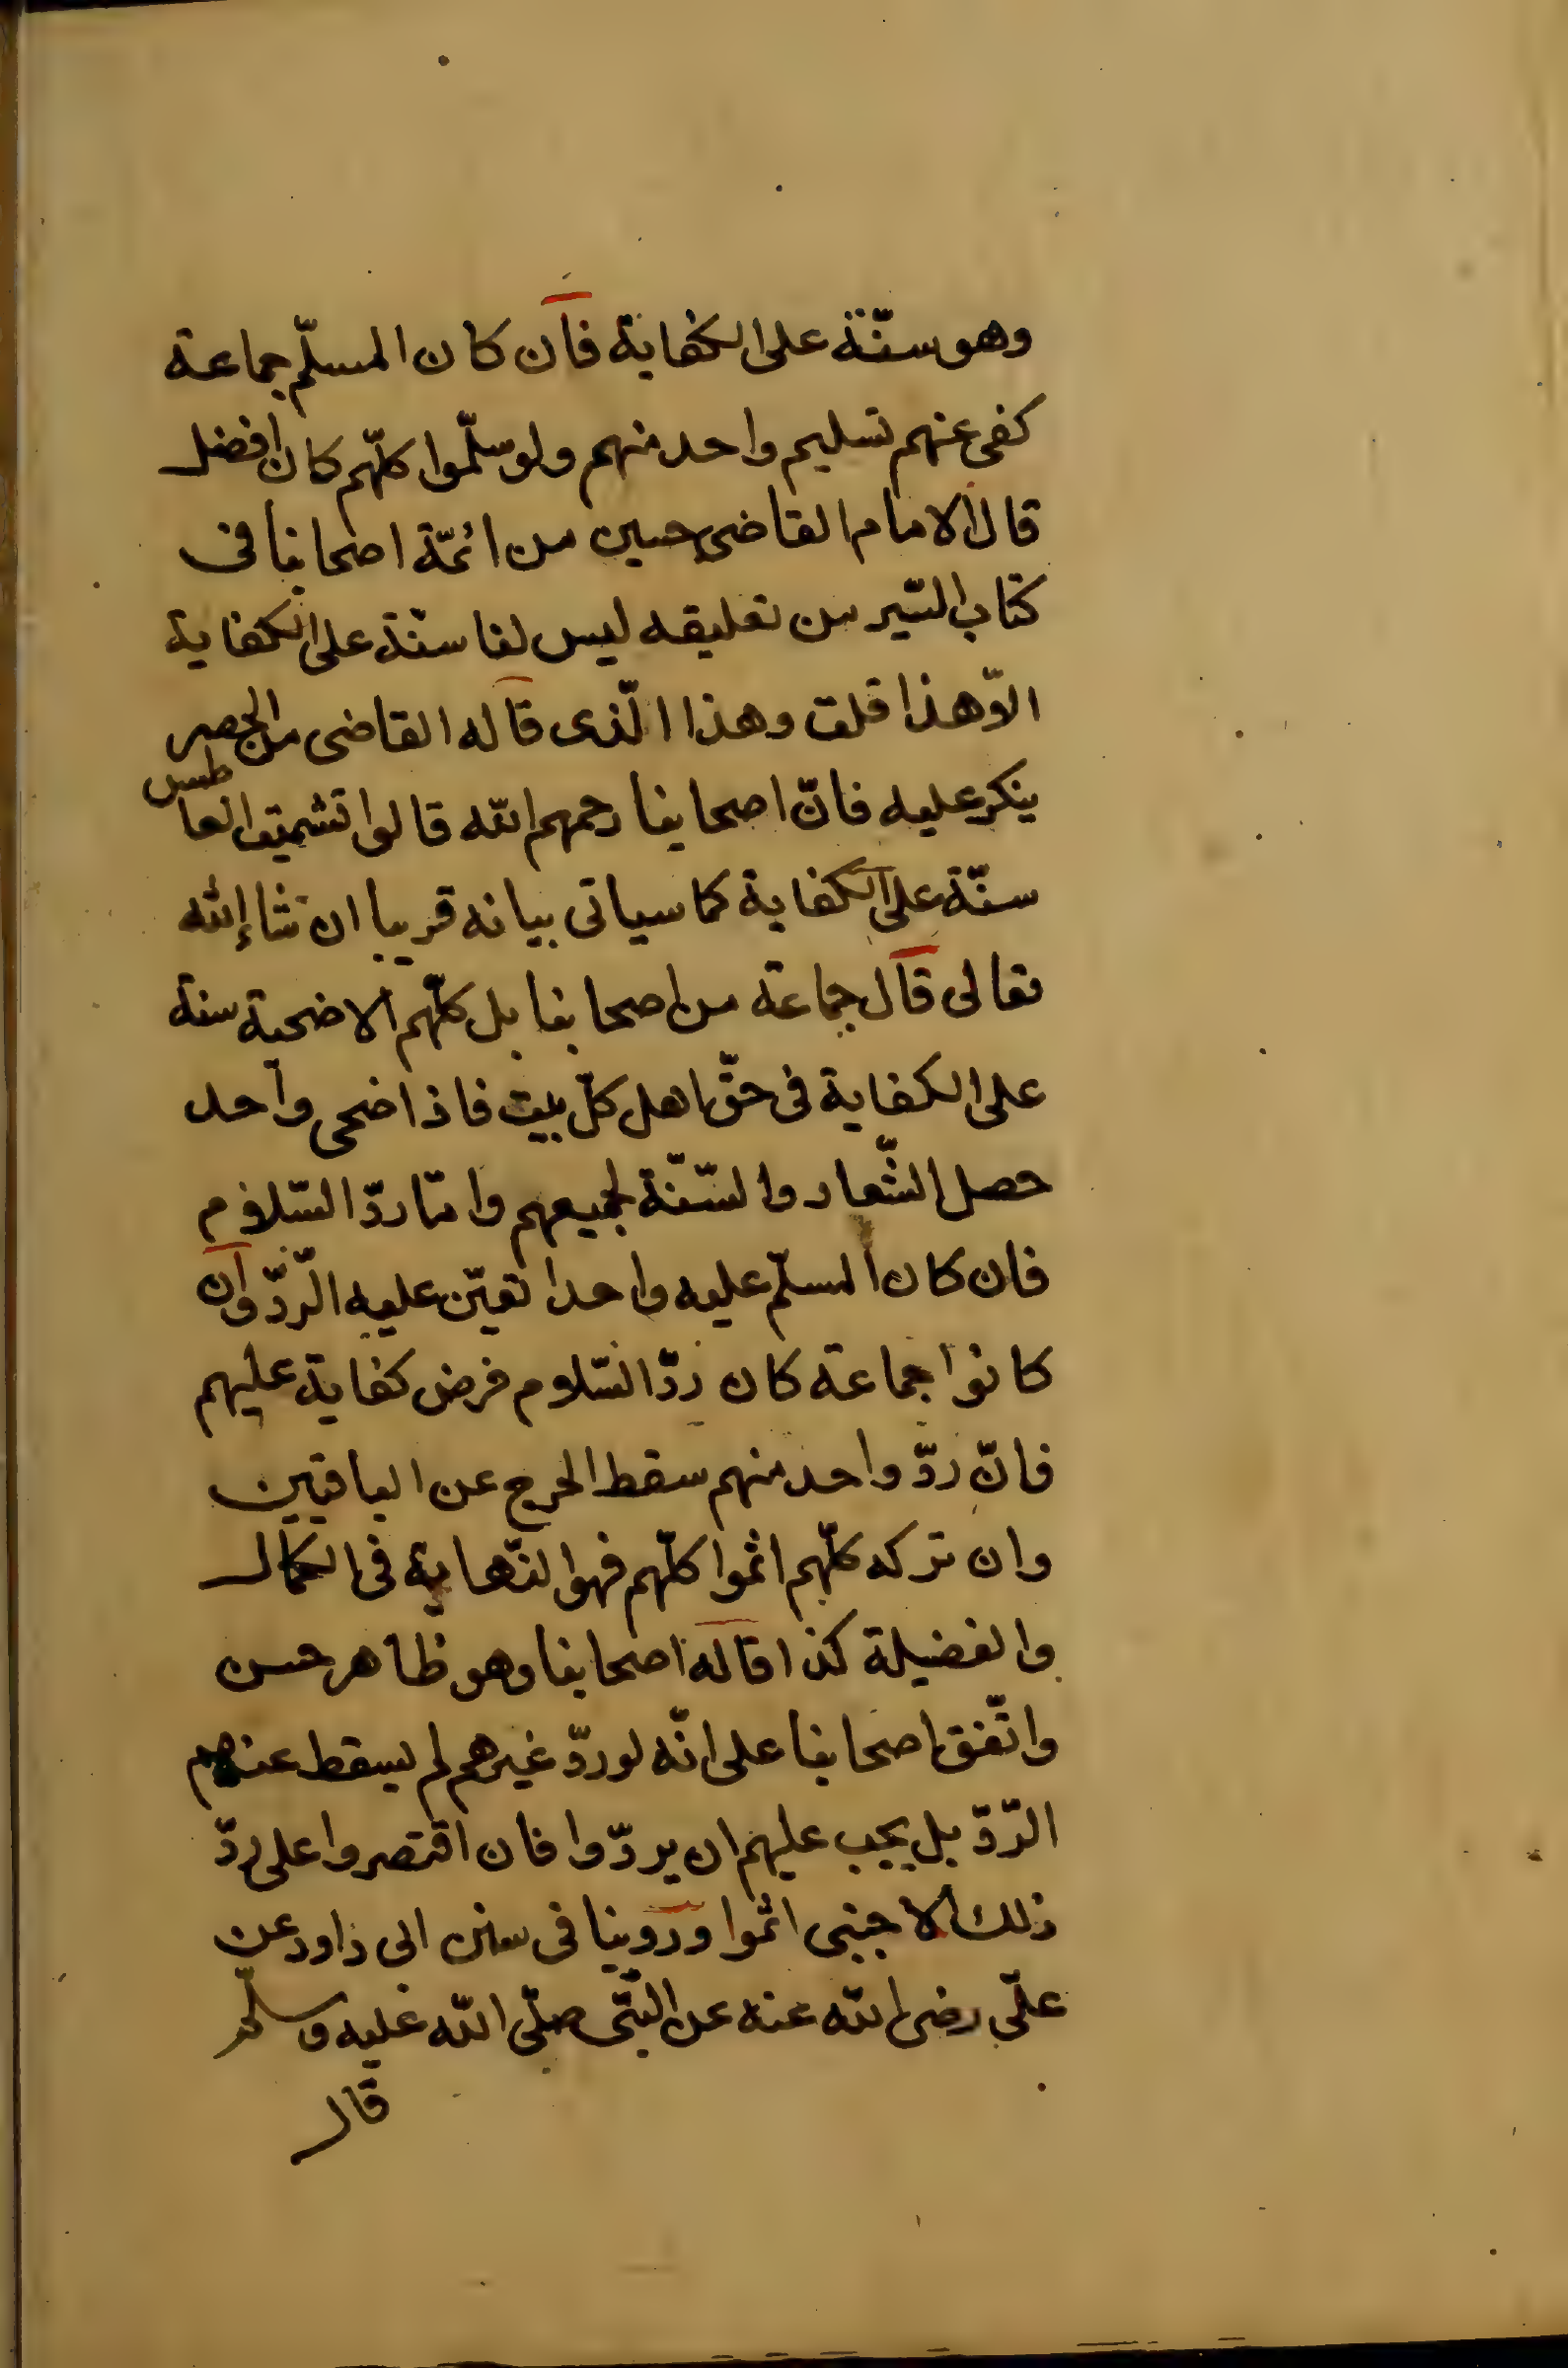 وهو سنّة على الكفاية فان كان المسلّم جماعة
كفى عنهم تسليم واحد منهم ولو سلّموا كلّهم كان افضل
قال الامام القاضى حسين من ائمّة اصحابنا فى
كتاب السّير من تعليقه ليس لنا سنّة على الكفاية
الّا هذا قلت وهذا الّذى قاله القاضى من الحصر
ينكر عليه فانّ اصحابنا رحمهم الله قالوا تشميت العاطس
سنّة على الكفاية كما سياتى بيانه قريبا ان شاء الله
تعالى قال جماعة من اصحابنا بل كلّهم الاضحية سنة
على الكفاية فى حقّ اهل كلّ بيت فاذا ضحى واحد
حصل الشّعار والسّنّة لجميعهم وامّا ردّ السّلام
فان كان المسلّم عليه واحدا تعيّن عليه الرّدّ وان
كانوا جماعة كان ردّ السّلام فرض كفاية عليهم
فانّ ردّ واحد منهم سقط الحرج عن الباقيين
وان تركه كلّهم اثموا كلّهم فهو النّهاية فى الكمال
والفضيلة كذا قاله اصحابنا وهو ظاهر حسن
واتّفق اصحابنا على انّه لو ردّ غيرهم لم يسقط عنهم
الرّدّ بل يجب عليهم ان يردّوا فان اقتصروا على ردّ
ذلك الاجنبى اثموا وروينا فى سنن ابى داود عن
علّى رضى الله عنه عن النّبّى صلّى الله عليه وسلّم
قال